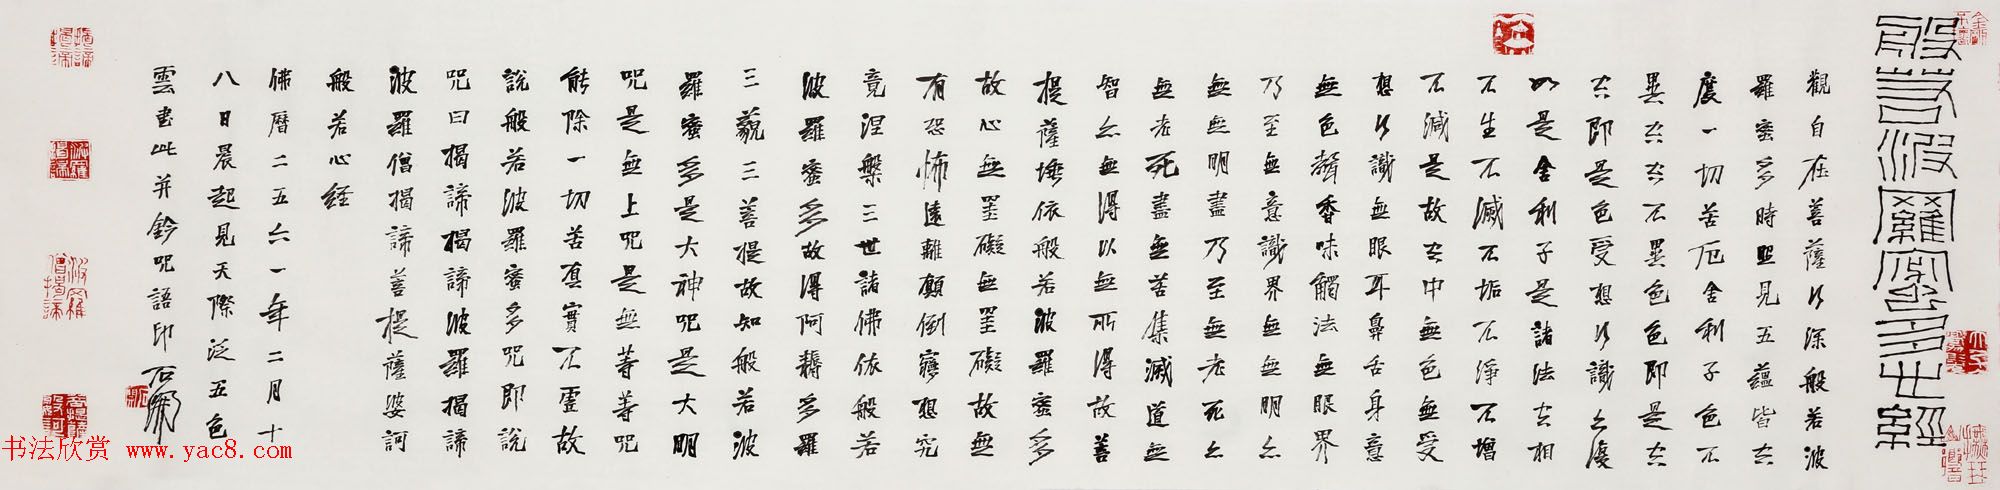 般若波羅蜜多心經
觀自在菩薩行深般若波
羅蜜多時照見五蘊皆空
度一切苦厄舍利子色不
異空空不異色色即是空
空即是色受想行識亦復
如是舍利子是諸法空相
不生不滅不垢不淨不增
不減是故空中無色無受
想行識無眼耳鼻舌身意
無色聲香味觸法無眼界
乃至無意識界無無明亦
無無明盡乃至無老死亦
無老死盡無苦集滅道無
智亦無得以無所得故菩
提薩埵依般若波羅蜜多
故心無罣礙無罣礙故無
有恐怖遠離顛倒夢想究
竟涅槃三世諸佛依般若
波羅蜜多故得阿耨多羅
三藐三菩提故知般若波
羅蜜多是大神呪是大明
呪是無上呪是無等等呪
能除一切苦真實不虛故
說般若波羅蜜多呪即說
呪曰揭諦揭諦波羅揭諦
波羅僧揭諦菩提薩婆訶
般若心經
佛曆二五六一年二月十
八日晨起見天際泛五色
雲書此并鈐呪語印 石開
揭諦揭諦
波羅揭諦
波羅僧揭諦
菩提薩婆訶
书法欣赏 www.yac8.com